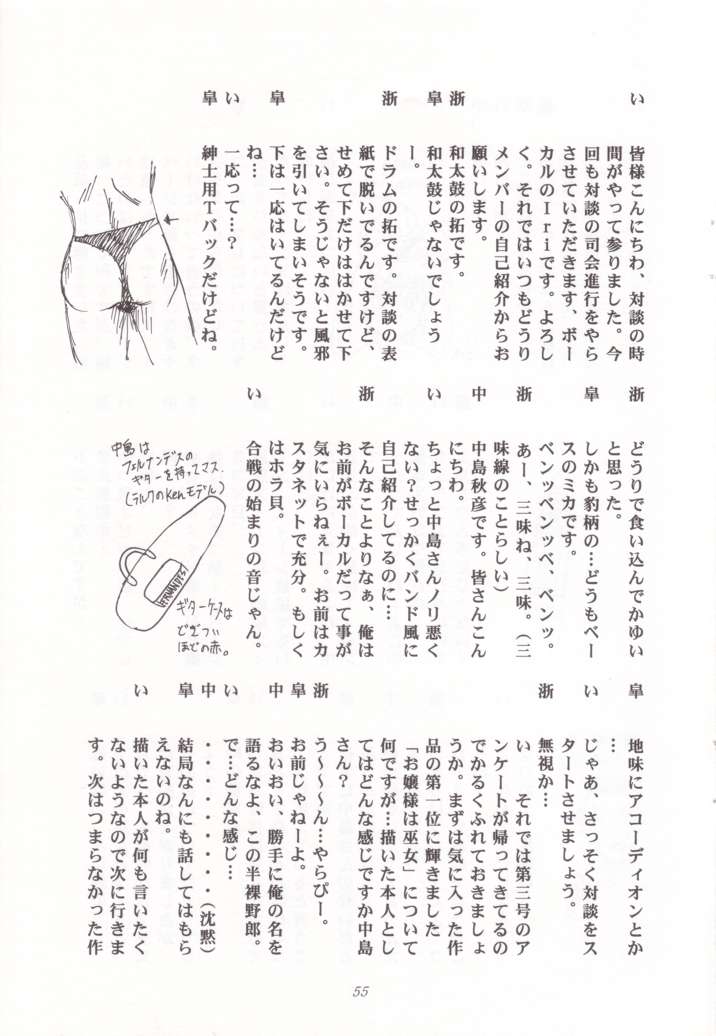 い 皆様こんにちわ、対談の時
間がやって参りました。今
回も対談の司会進行をやら
させていただきます、ボー
カルのIriです。よろし
く。それではいつもどうり
メンバーの自己紹介からお
願いします。
浙 和太鼓の拓です。
皐 和太鼓じゃないでしょう
ー。
浙 ドラムの拓です。対談の表
紙で脱いでるんですけど、
せめて下だけははかせて下
さい。そうじゃないと風邪
を引いてしまいそうです。
皐 下は一応はいてるんだけど
ね…
い 一応って…?
皐 紳士用Tバックだけどね。
浙 どうりで食い込んでかゆい
と思った。
皐 しかも豹柄の…どうもベー
スのミカです。
浙 ベンッベンッベ、ベンッ。
あー、三味ね、三味。(三
味線のことらしい)
中 中島秋彦です。皆さんこん
にちわ。
い ちょっと中島さんノリ悪く
ない?せっかくバンド風に
自己紹介してるのに…
浙 そんなことよりなぁ、俺は
お前がボーカルだって事が
気にいらねぇー。お前はカ
スタネットで充分。もしく
はホラ貝。
い 合戦の始まりの音じゃん。
中島は
フェルナンデスの
ギターを持ってマス.
(ラルクのKenモデル)
FERNANDES!
ギターケースは
どぎつい
ほどの赤。
皐 地味にアコーディオンとか
…
い じゃあ、さっそく対談をス
タートさせましょう。
浙 無視か…
い それでは第三号のア
ンケートが帰ってきてるの
でかるくふれておきましょ
うか。まずは気に入った作
品の第一位に輝きました
「お嬢様は巫女」について
何ですが…描いた本人とし
てはどんな感じですか中島
さん?
浙 う〜〜〜ん…やらぴー。
皐 お前じゃねーよ。
中 おいおい、勝手に俺の名を
語るなよ、この半裸野郎。
い で…どんな感じ…
中 ・・・・・・・・(沈黙)
皐 結局なんにも話してはもら
えないのね。
い 描いた本人が何も言いたく
ないようなので次に行きま
す。次はつまらなかった作
55